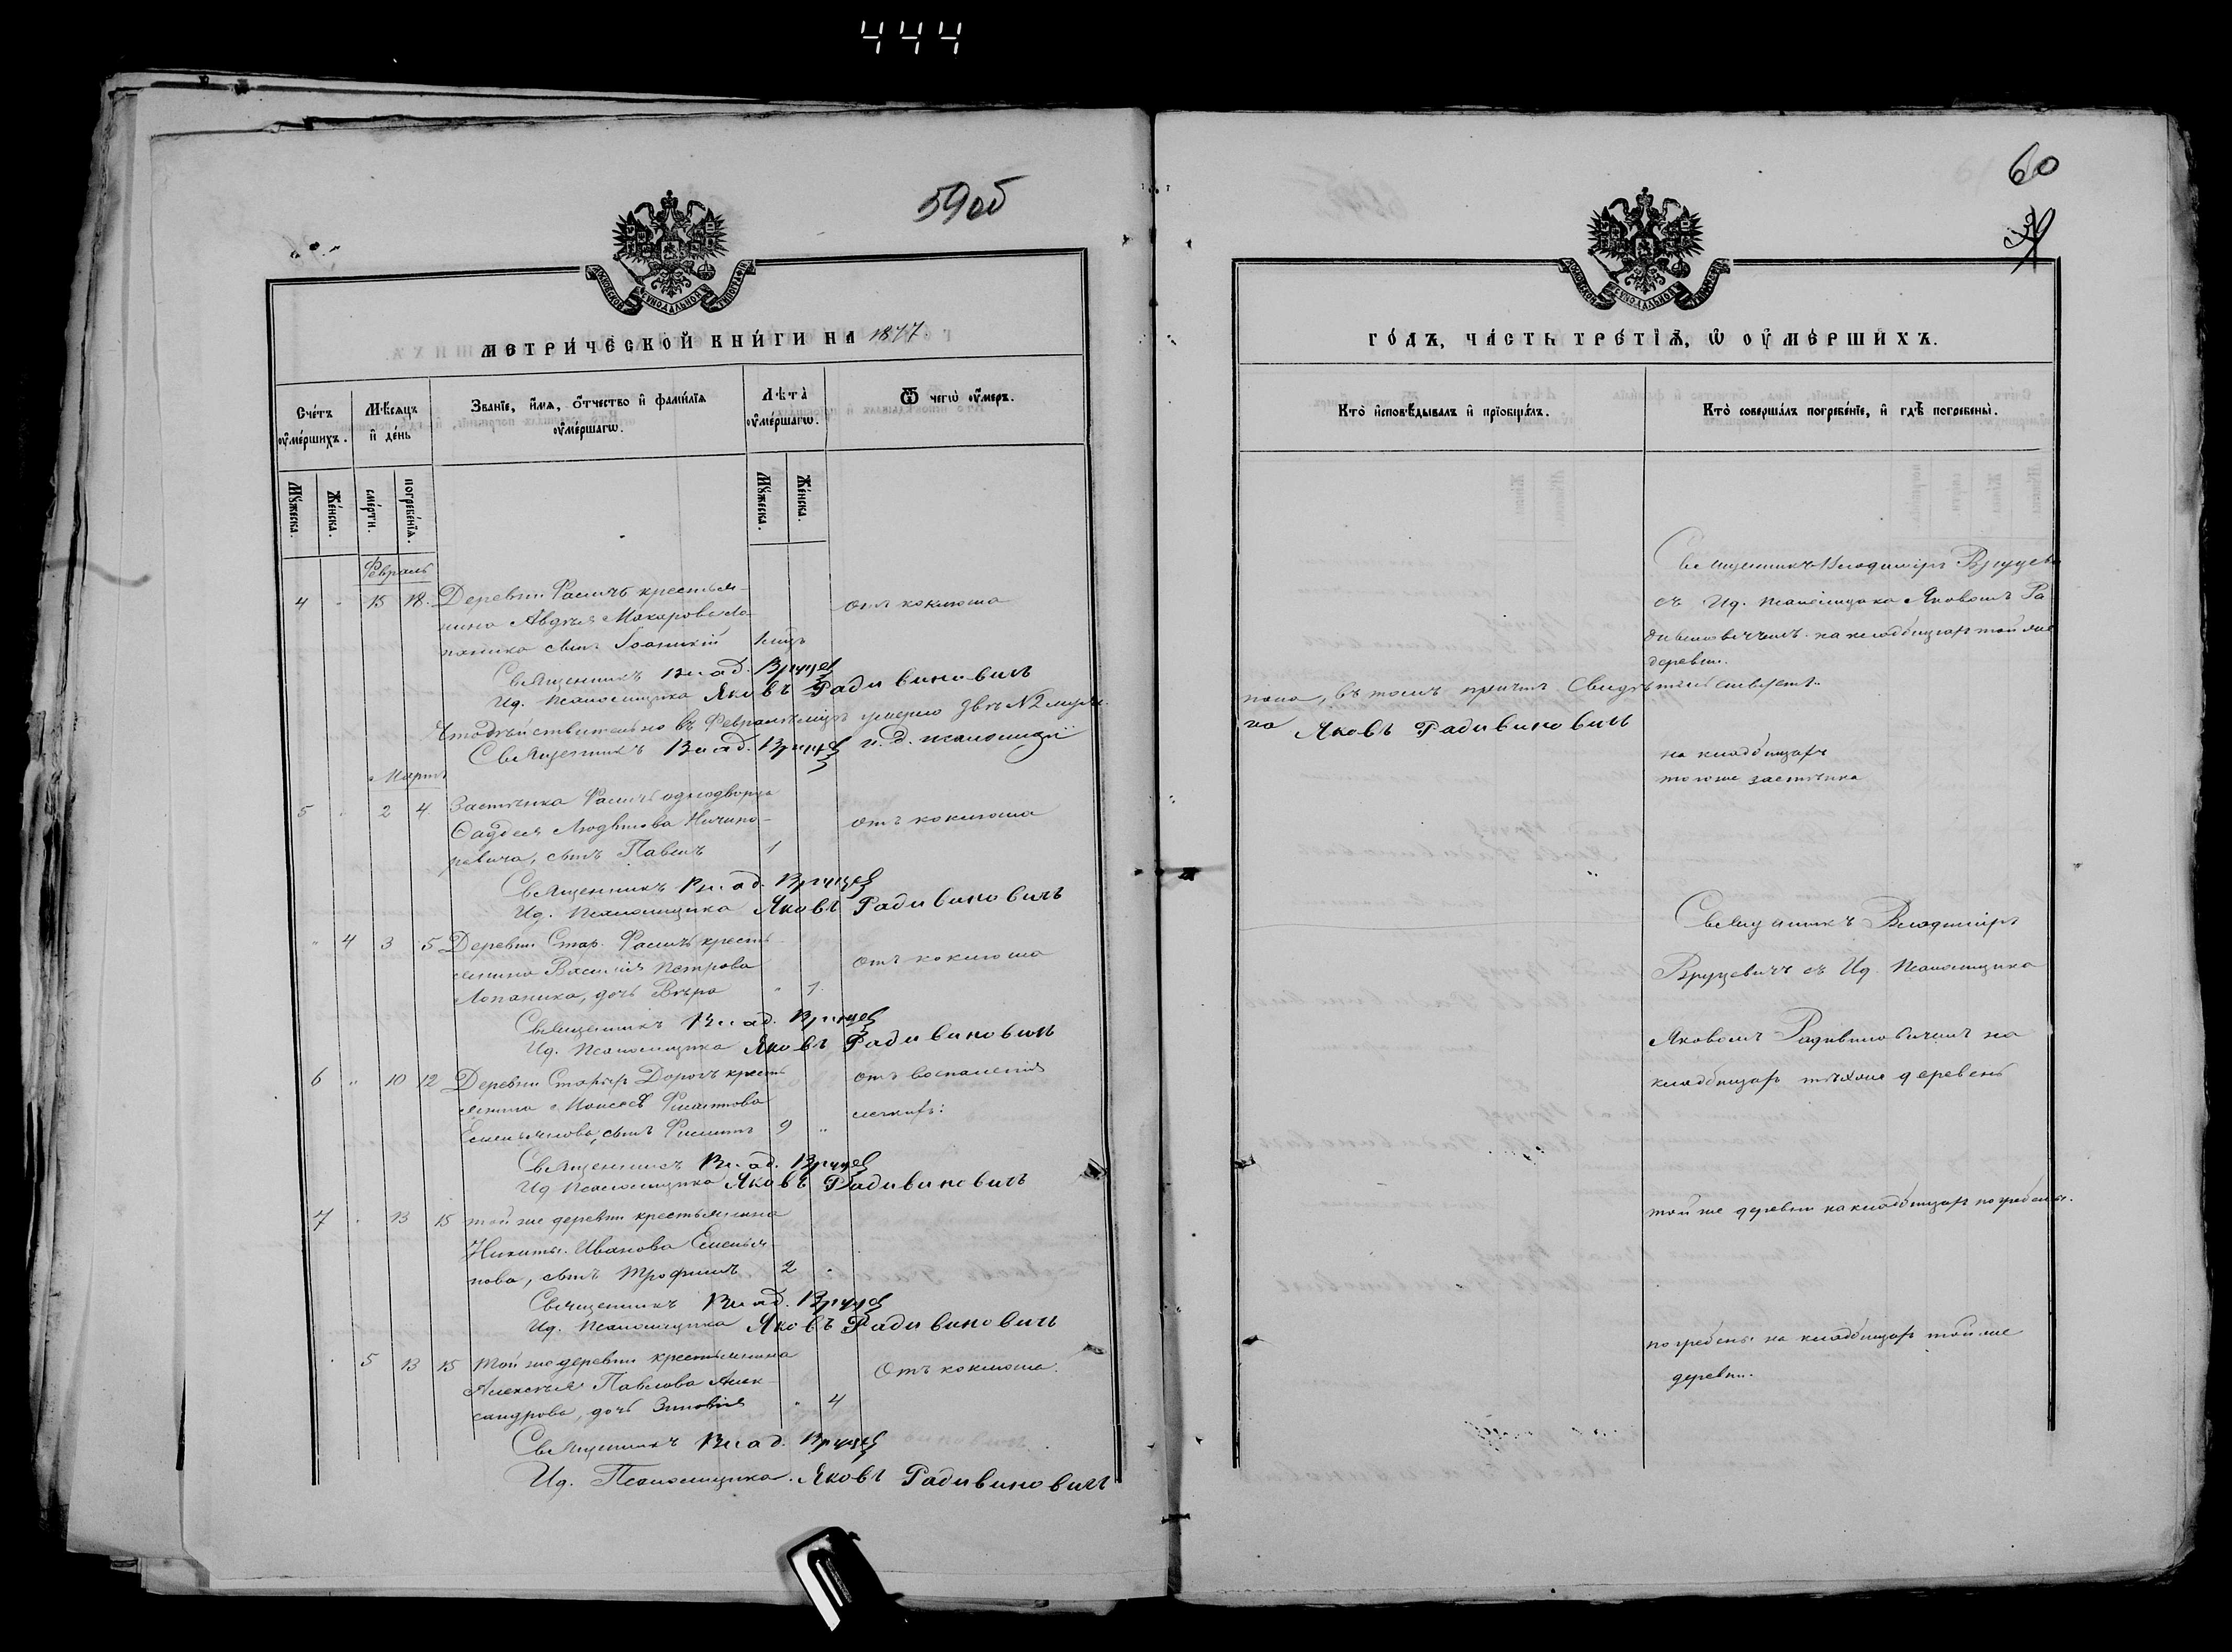 444
59об
МОСКОВСКОЙ СѴНОДАЛЬНОЙ ТИПОГРАФІИ
МЕТРИ́ЧЕСКОЙ КНИ́ГИ НА 1877
Сче́тъ ᲂу҆ме́ршихъ.
Мѣ́сяцъ и҆ де́нь
Зва́нїе, и҆́мѧ, ѻ҆́тчество и҆ фами́лїѧ ᲂу҆ме́ршагѡ.
Лѣ́та ᲂу҆ме́ршагѡ.
Ѿ чегѡ̀ ᲂу҆́меръ.
Мꙋ́жеска.
Же́нска.
сме́рти.
погребе́нїѧ.
Мꙋ́жеска.
Же́нска.
Февраль
4 " 15 18. Деревни Фаличъ крестья-
нина Авдѣя Макарова Ло-
паника сынъ Іоаникій
отъ коклюша
Священникъ Влад. Вруцев
Ид. псаломщика Яковъ Радивиновичъ
Что дѣйствительно въ Февралѣ умерло
Священникъ Влад. Вруцев и. д. псаломщи
Мартъ
5 " 2 4 Застѣнка Фаличъ однодворца
Ничипо-
ровича, сынъ Павелъ 1
отъ коклюша
Священникъ Влад. Вруцев
Ид. псаломщика Яковъ Радивиновичъ
" 4 3 5 Деревни Стар. Фаличъ кресть-
янина Василія Петрова
Лопаника, дочь Вѣра " 1.
отъ коклюша
Священникъ Влад. Вруцев
Ид. псаломщика Яковъ Радивиновичъ
6 " 10 12 Деревни Старыхъ Дорогъ кресть
янина Моисея Филиппова
Емельянова, сынъ Филиппъ 9 "
отъ воспаленія
легкихъ:
Священникъ Влад. Вруцев
Ид псаломщика Яковъ Радивиновичъ
7 " 13 15 той же деревни крестьянина
Никиты Иванова Емелья-
нова, сынъ Трофимъ 2 "
Священникъ Влад. Вруцев
Ид. псаломщика Яковъ Радивиновичъ
" 5 13 15 той же деревни крестьянина
Алексѣя Павлова Алек-
сандрова, дочь Зиновія " 4
Отъ коклюша.
Священникъ Влад. Вруцев
Ид. Псаломщика. Яковъ Радивиновичъ
60
МОСКОВСКОЙ СѴНОДАЛЬНОЙ ТИПОГРАФІИ
ГО́ДЪ, ЧА́СТЬ ТРЕ́ТЇѦ, Ѡ҆ ОУ҆МЕ́РШИХЪ.
Кто̀ и҆сповѣ́дывалъ и҆ прїобща́лъ.
Кто̀ соверша́лъ погребе́нїе, и҆ гдѣ̀ погребены̀.
Священникъ Владиміръ Вруцев
съ Ид. псаломщика Яковомъ Ра-
дивиновичемъ на кладбищѣ той же
деревни.
пола, въ томъ причтъ Свидѣтельствуетъ
ка Яковъ Радивиновичъ
на кладбищѣ
того же застѣнка
Священникъ Владиміръ
Вруцевичъ съ Ид. псаломщика
Яковомъ Радивиновичемъ на
кладбищахъ тѣхъ же деревень
той же деревни на кладбищѣ погребены.
погребены на кладбищѣ той же
деревни.